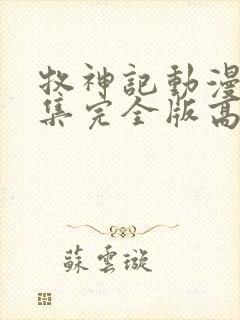 牧神記動漫
集完全版高
蘇雲璇